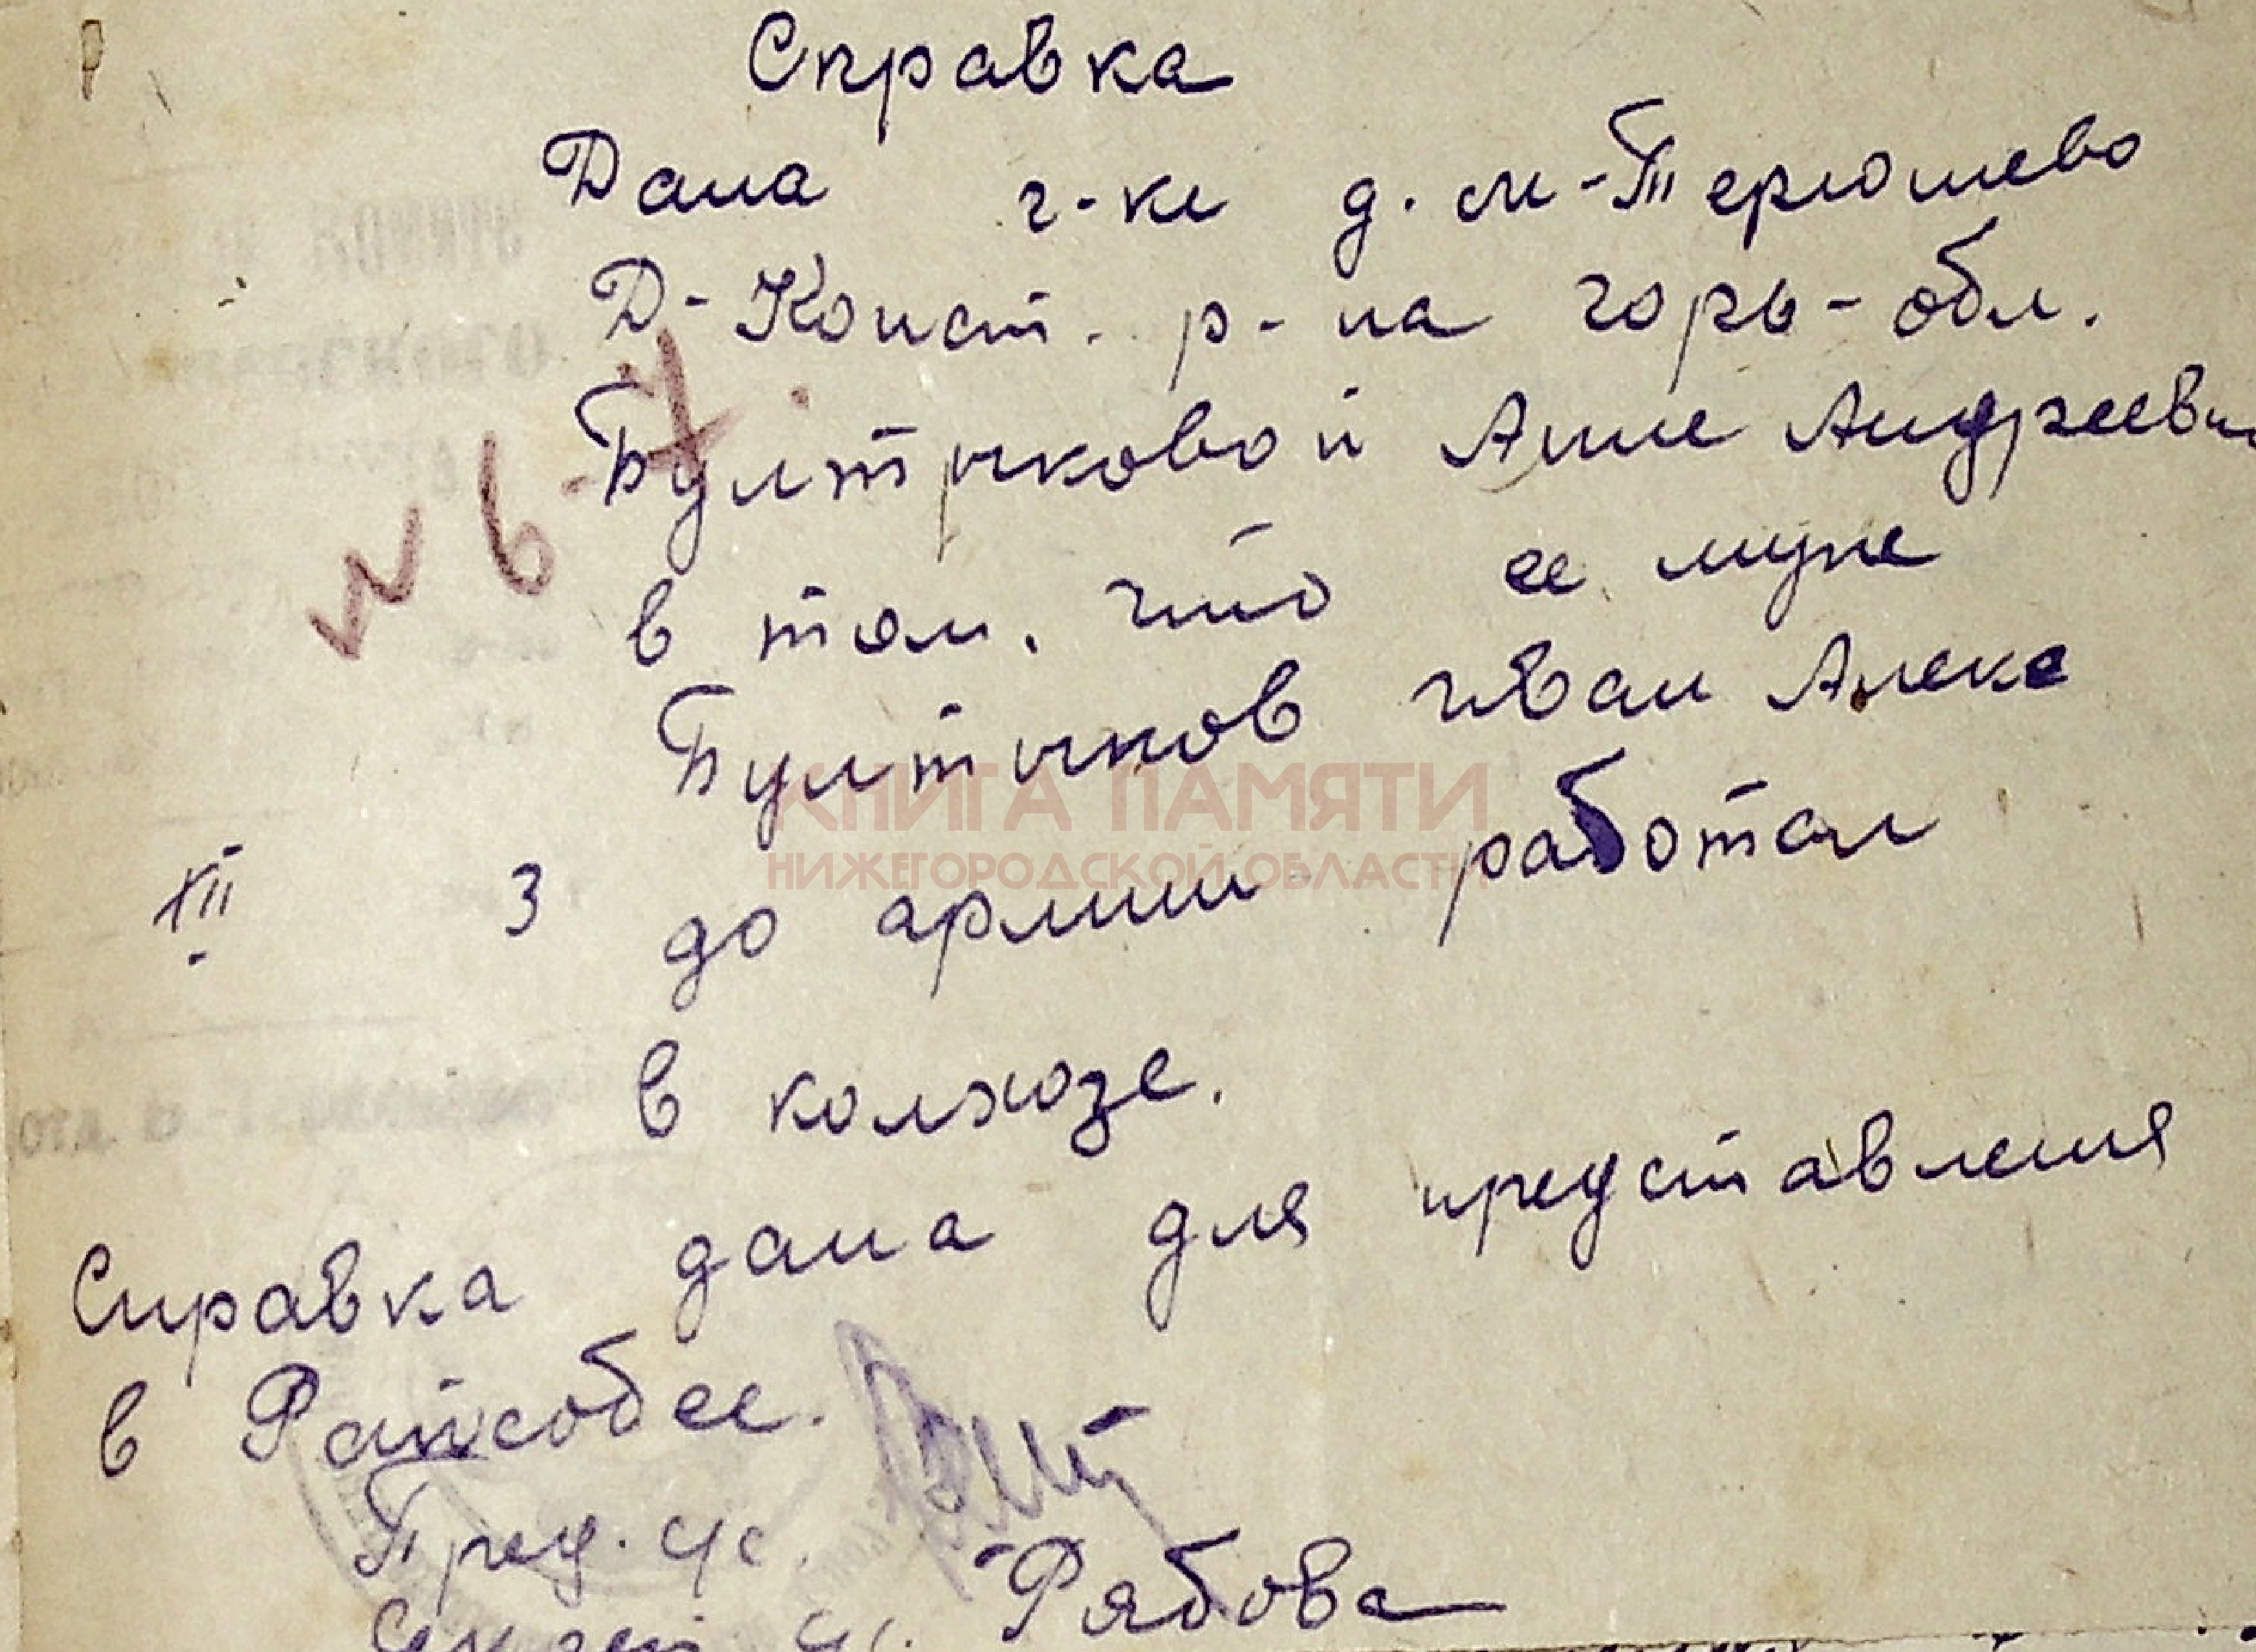 Справка
Дана г-ке д. м-Терюшево
Д-Конст. р-на горь-обл.
Бултыковой Анне Андреевн
№ 67
в том, что ее муж
Бултыков Иван Алекс
КНИГА ПАМЯТИ
НИЖЕГОРОДСКОЙ ОБЛАСТИ
XII 3 до армии работал
в колхозе.
Справка дана для представления
в Райсобес.
Пред. с/с.
Рябова